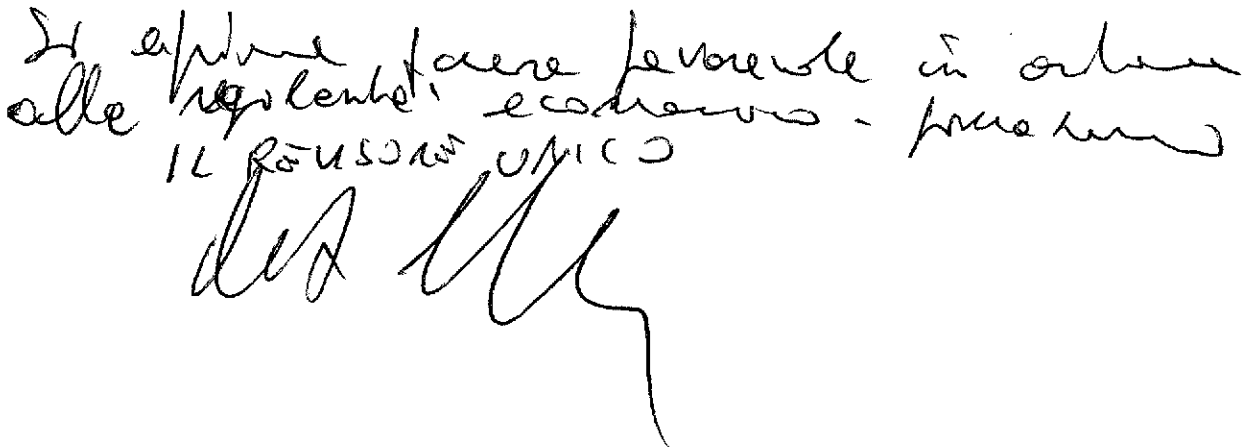 Si esprime parere favorevole in ordine
alla regolarità economico - finanziaria
IL REVISORE UNICO